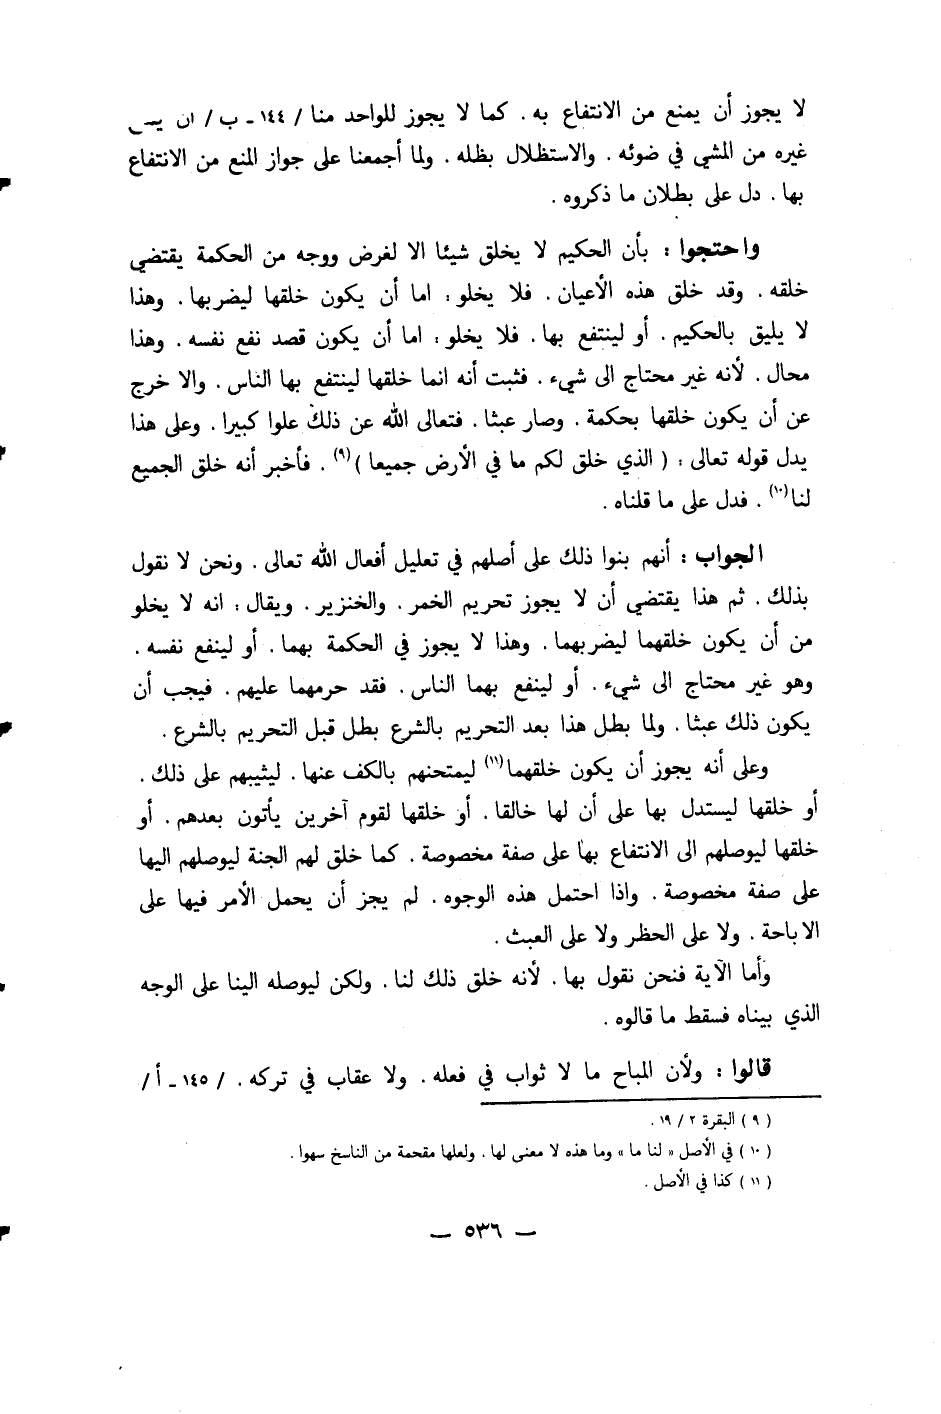 لا يجوز أن يمنع من الانتفاع به . كما لا يجوز للواحد منا / ١٤٤ ـ ب / ان
غيره من المشي في ضوئه . والاستظلال بظله . ولما أجمعنا على جواز المنع من الانتفاع
بها . دل على بطلان ما ذكروه .
واحتجوا : بأن الحكيم لا يخلق شيئا الا لغرض ووجه من الحكمة يقتضي
خلقه . وقد خلق هذه الأعيان . فلا يخلو : اما أن يكون خلقها ليضربها . وهذا
لا يليق بالحكيم . أو لينتفع بها . فلا يخلو : اما أن يكون قصد نفع نفسه . وهذا
محال . لأنه غير محتاج الى شيء . فثبت أنه انما خلقها لينتفع بها الناس . والا خرج
عن أن يكون خلقها بحكمة . وصار عبثا . فتعالى الله عن ذلك علوا كبيرا . وعلى هذا
يدل قوله تعالى : ( الذي خلق لكم ما في الأرض جميعا )(٩) . فأخبر أنه خلق الجميع
لنا(١٠) . فدل على ما قلناه .
الجواب : أنهم بنوا ذلك على أصلهم في تعليل أفعال الله تعالى . ونحن لا نقول
بذلك . ثم هذا يقتضي أن لا يجوز تحريم الخمر . والخنزير . ويقال : انه لا يخلو
من أن يكون خلقهما ليضربهما . وهذا لا يجوز في الحكمة بهما . أو لينفع نفسه .
وهو غير محتاج الى شيء . أو لينفع بهما الناس . فقد حرمهما عليهم . فيجب أن
يكون ذلك عبثا . ولما بطل هذا بعد التحريم بالشرع بطل قبل التحريم بالشرع .
وعلى أنه يجوز أن يكون خلقهما(١١) ليمتحنهم بالكف عنها . ليثيبهم على ذلك .
أو خلقها ليستدل بها على أن لها خالقا . أو خلقها لقوم آخرين يأتون بعدهم . أو
خلقها ليوصلهم الى الانتفاع بها على صفة مخصوصة . كما خلق لهم الجنة ليوصلهم اليها
على صفة مخصوصة . واذا احتمل هذه الوجوه . لم يجز أن يحمل الأمر فيها على
الاباحة . ولا على الحظر ولا على العبث .
وأما الآية فنحن نقول بها . لأنه خلق ذلك لنا . ولكن ليوصله الينا على الوجه
الذي بيناه فسقط ما قالوه .
قالوا : ولأن المباح ما لا ثواب في فعله . ولا عقاب في تركه . / ١٤٥ ـ أ /
( ٩ ) البقرة ٢ / ١٩ .
( ١٠ ) في الأصل « لنا ما » وما هذه لا معنى لها . ولعلها مقحمة من الناسخ سهوا .
( ١١ ) كذا في الأصل .
— ٥٣٦ —